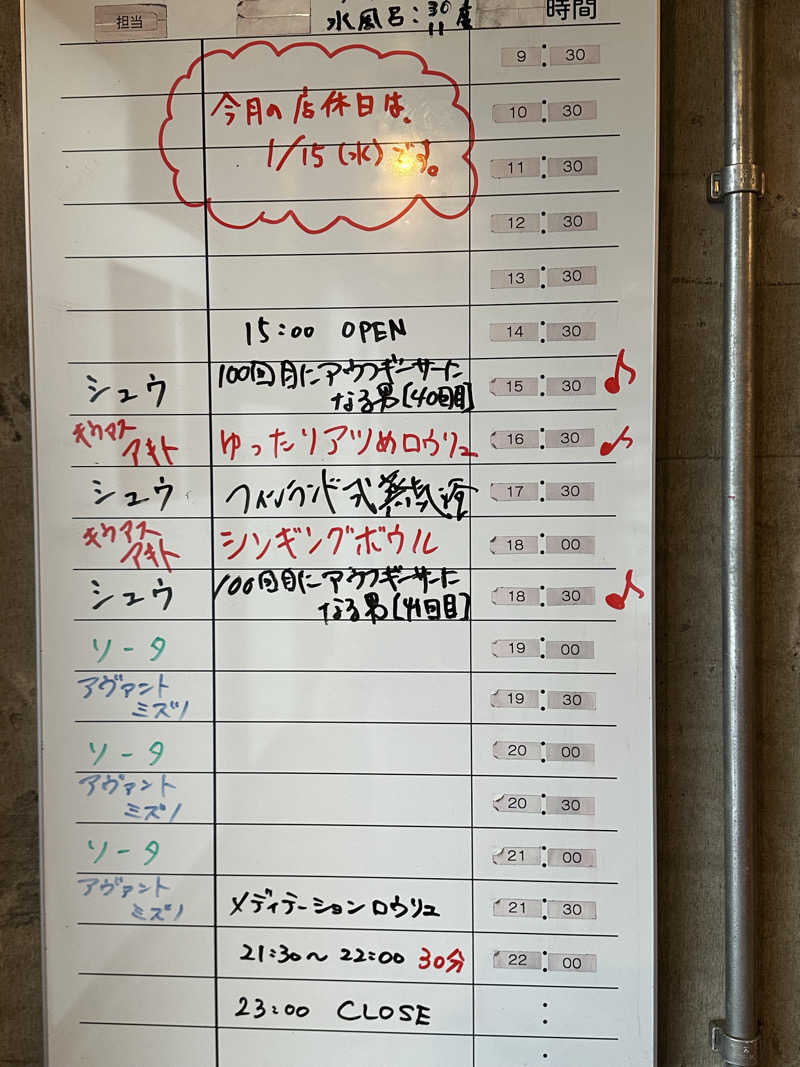 水風呂:30度
11
担当
時間
9:30
今月の店休日は、
10:30
1/15(水)です。
11:30
12:30
13:30
15:00 OPEN
14:30
シュウ
100回目にアウフギーサーに
なる男[40回目]
15:30
キウアス
アキト
ゆったりアツめロウリュ
16:30
シュウ
フィンランド式蒸気浴
17:30
キウアス
アキト
シンギングボウル
18:00
シュウ
100回目にアウフギーサーに
なる男[41回目]
18:30
ソータ
19:00
アヴァント
ミズノ
19:30
ソータ
20:00
アヴァント
ミズノ
20:30
ソータ
21:00
アヴァント
ミズノ
メディテーションロウリュ
21:30
21:30〜22:00 30分
22:00
23:00 CLOSE
:
: